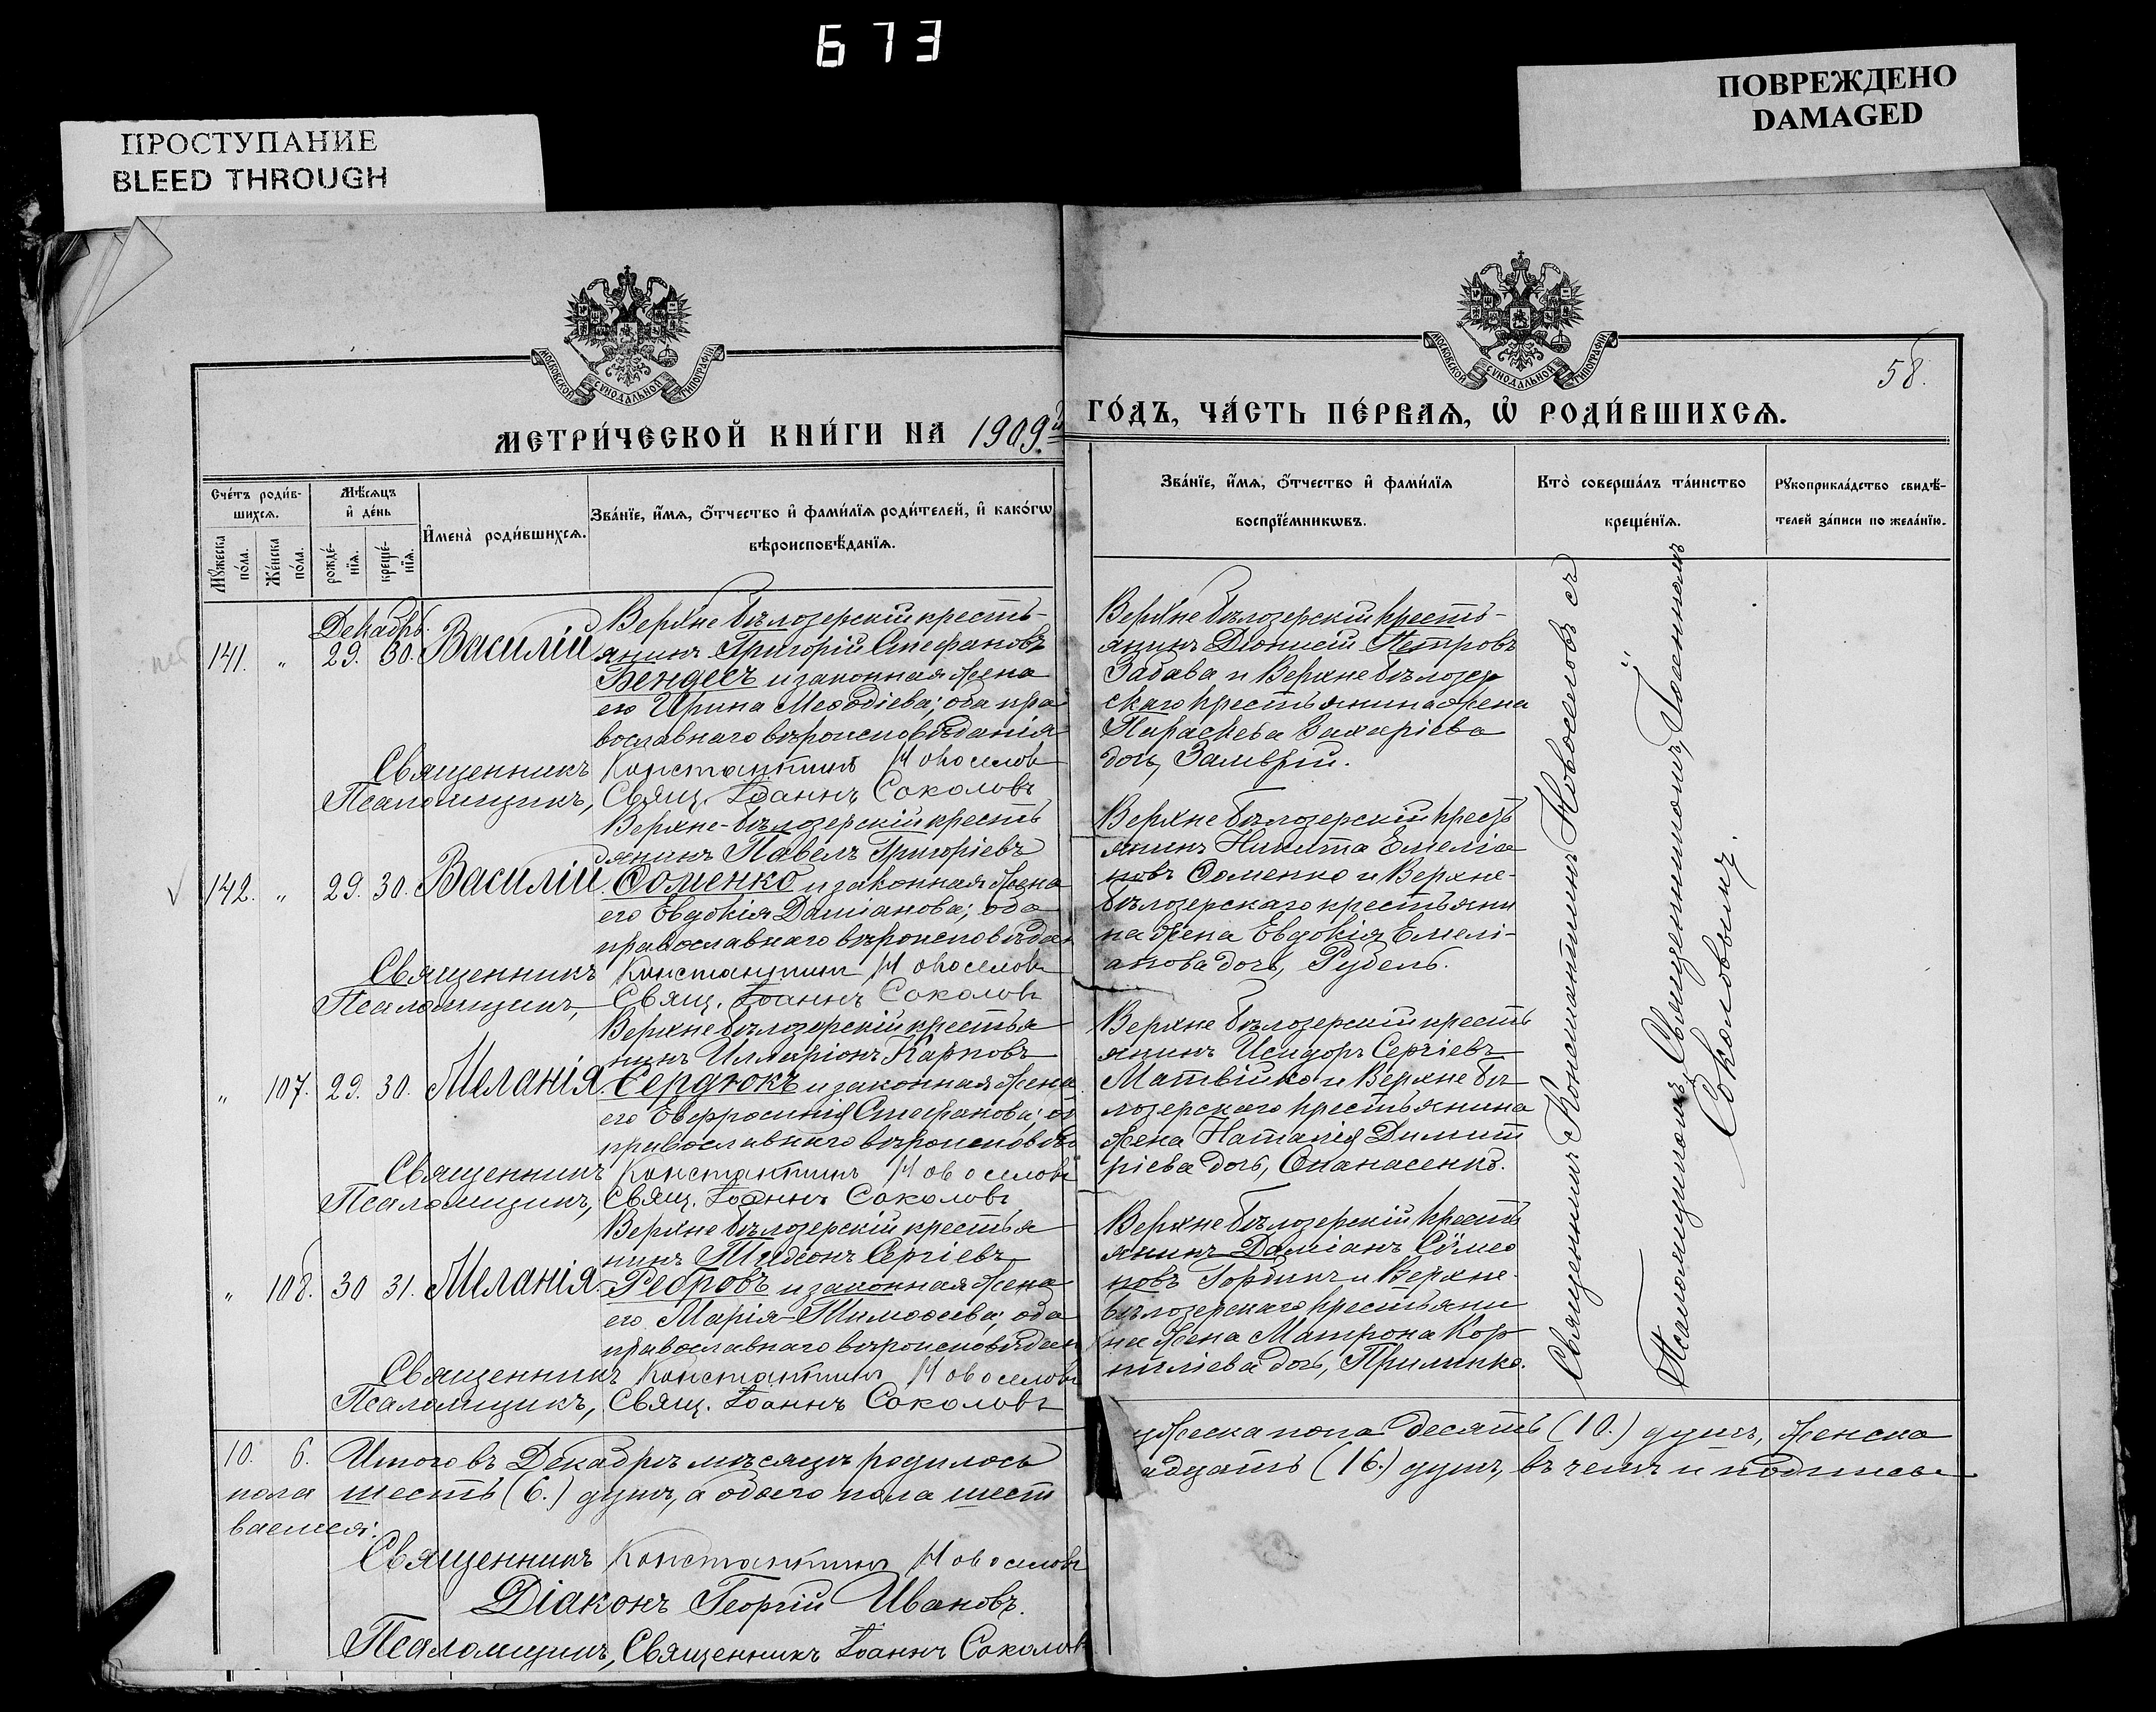 673
ПРОСТУПАНИЕ
BLEED THROUGH
ПОВРЕЖДЕНО
DAMAGED
МОСКОВСКОЙ СУНОДАЛЬНОЙ ТИПОГРАФІИ
МОСКОВСКОЙ СУНОДАЛЬНОЙ ТИПОГРАФІИ
58.
МЕТРИ́ЧЕСКОЙ КНИ́ГИ НА 1909й
ГО́ДЪ, ЧА́СТЬ ПЕ́РВАѦ, Ѡ҆ РОДИ́ВШИХСѦ.
Сче́тъ роди́в-
шихсѧ.
Мѹ́жеска по́ла.
Же́нска по́ла.
Мѣ́сѧцъ
и҆ де́нь
рожде́-
нїѧ.
креще́-
нїѧ.
И҆мена̀ роди́вшихсѧ.
Зва́нїе, и҆́мѧ, ѻ҆́тчество и҆ фами́лїѧ роди́телей, и҆ како́гѡ
вѣроисповѣ́данїѧ.
Зва́нїе, и҆́мѧ, ѻ҆́тчество и҆ фами́лїѧ
воспрїе́мникѡвъ.
Кто̀ соверша́лъ та́инство
креще́нїѧ.
Рѹкоприкла́дство свидѣ́-
телей за́писи по жела́нїю.
Декабрь.
141. " 29. 30. Василій
Верхнебѣлозерскій кресть-
янинъ Григорій Стефановъ
Бендесъ и законная жена
его Ирина Меѳодіева; оба пра
вославнаго вѣроисповѣданія
Священникъ Константинъ Новоселов
Псаломщикъ, Свящ. Іоаннъ Соколовъ
Верхнебѣлозерскій кресть-
янинъ Діонисій Петровъ
Забава и Верхнебѣлозер
скаго крестьянина жена
Параскева Захаріева
дочь,
142. " 29. 30. Василій
Верхне-бѣлозерскій кресть
янинъ Павелъ Григоріевъ
Ѳоменко и законная жена
его Евдокія Даміанова; оба
православнаго вѣроисповѣдан
Священникъ Константинъ Новоселовъ
Псаломщикъ, Свящ. Іоаннъ Соколовъ
Верхнебѣлозерскій кресть
янинъ Никита Емеліа
новъ Ѳоменко и Верхне-
бѣлозерскаго крестьяни
на жена Евдокія Емелі-
анова дочь, Рубель.
" 107. 29. 30. Меланія.
Верхнебѣлозерскій крестья
нинъ Илларіонъ Карповъ
Сердюкъ и законная жена
его Евфросинія Стефанова; об
православнаго вѣроисповѣд
Священникъ Константинъ Новоселовъ
Псаломщикъ, Свящ. Іоаннъ Соколовъ
Верхнебѣлозерскій кресть
янинъ Исидоръ Сергіевъ
Матвійко и Верхнебѣ
лозерскаго крестьянина
жена Наталія Димит
ріева дочь, Опанасенко.
" 108. 30 31. Меланія.
Верхнебѣлозерскій крестья
нинъ Гидеонъ Сергіевъ
Ребровъ и законная жена
его Марія Тимоѳеева; оба
православнаго вѣроисповѣдан
Священникъ Константинъ Новоселовъ
Псаломщикъ, Свящ. Іоаннъ Соколовъ
Верхнебѣлозерскій кресть
янинъ Даміанъ Сѵмео
новъ и Верхне-
бѣлозерскаго крестьяни
на жена Матрона Кор
ниліева дочь,
Священникъ Константинъ Новоселовъ съ
Псаломщикомъ, Священникомъ, Іоанномъ
Соколовымъ.
10. 6. Итого въ Декабрѣ мѣсяцѣ родилось
ужеска пола десять (10.) душъ, женска
пола шесть (6.) душъ, а обоего пола шест
адцать (16.) душъ, въ чемъ и подписы
ваемся:
Священникъ Константинъ Новоселовъ
Діаконъ Георгій Ивановъ.
Псаломщикъ, Священникъ Іоаннъ Соколовъ